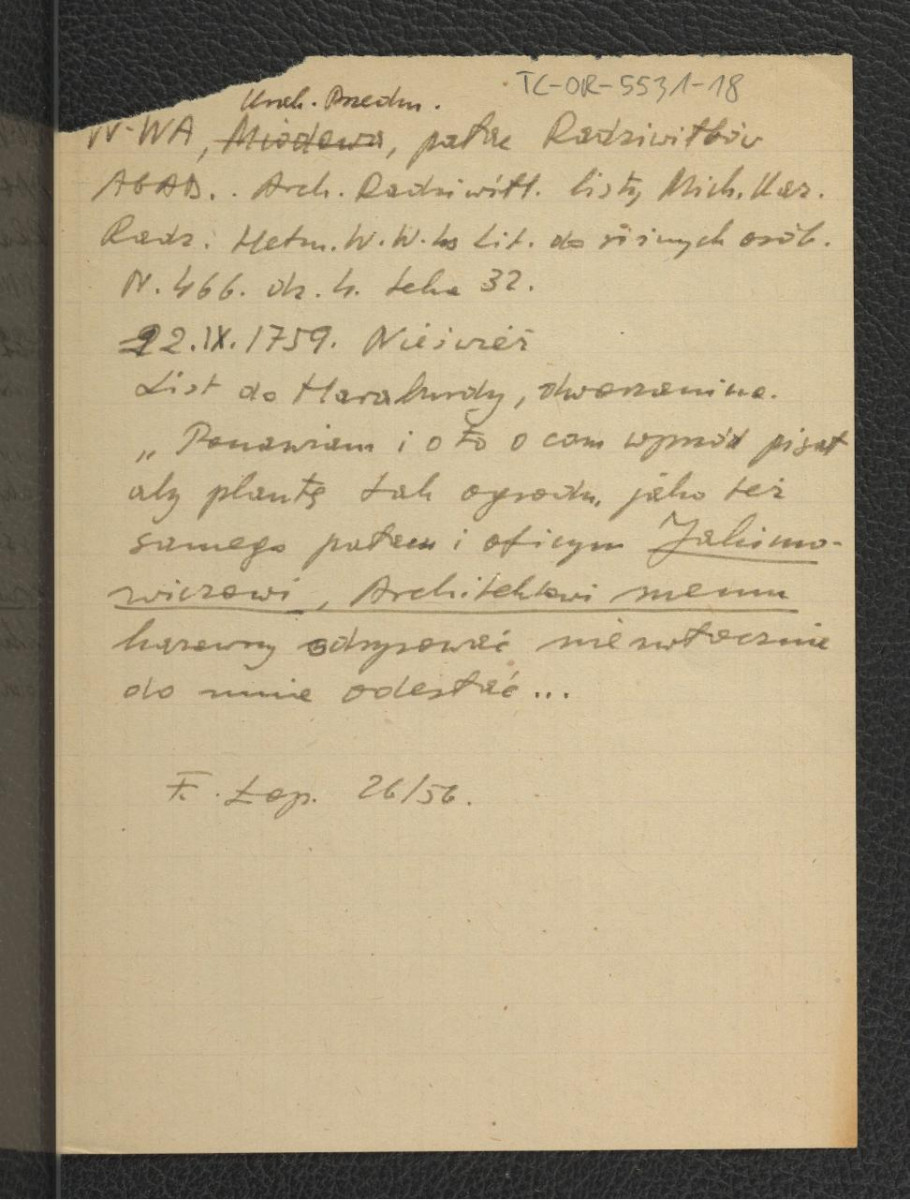 TC-OR-5531-18
Krak. Przedm.
W-WA, Miodowa, pałac Radziwiłłów
AGAD.. Arch. Radziwiłł. listy Mich. Kaz.
Radz. Hetm. W. W. Ks Lit. do różnych osób.
N. 466. dz. 4. teka 32.
22.IX.1759. Nieśwież
List do Haraburdy, dworzanina.
„Ponawiam i o to o com wprzód pisał
aby plantę tak ogrodu, jako też
samego pałacu i oficyn Jakimo-
wiczowi, Architektowi memu
kazawszy odrysować niezwłocznie
do mnie odesłać...
F. Łop. 26/56.